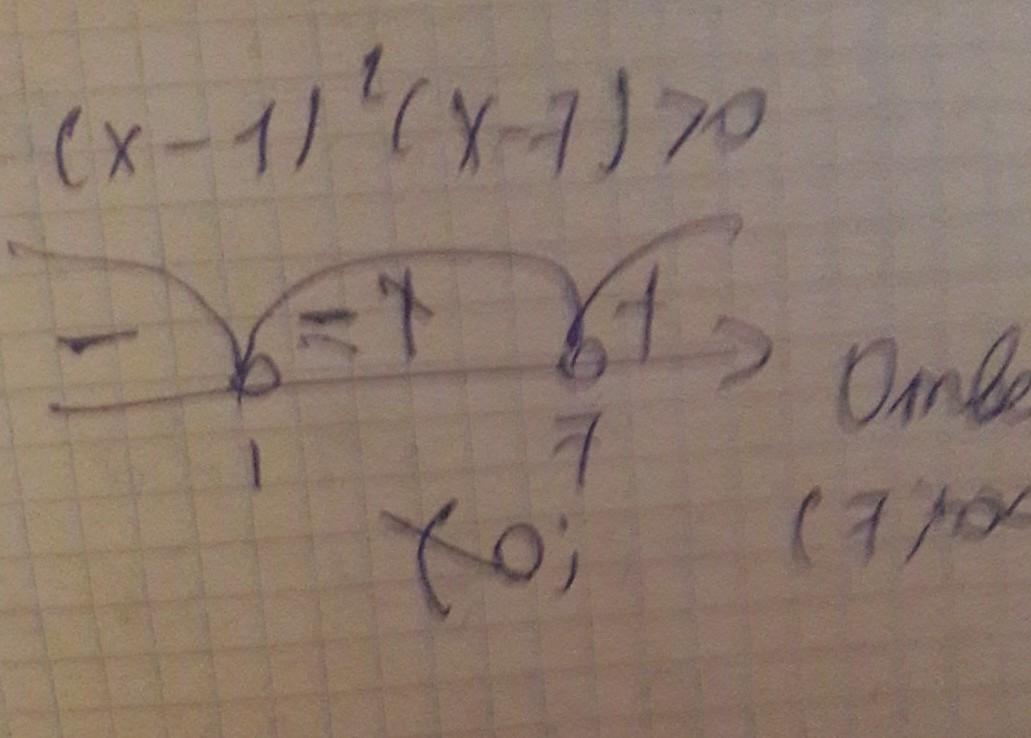 (x-1)²(x-7)>0
- = + +
1 7
Отве
(0;
(7;+∞